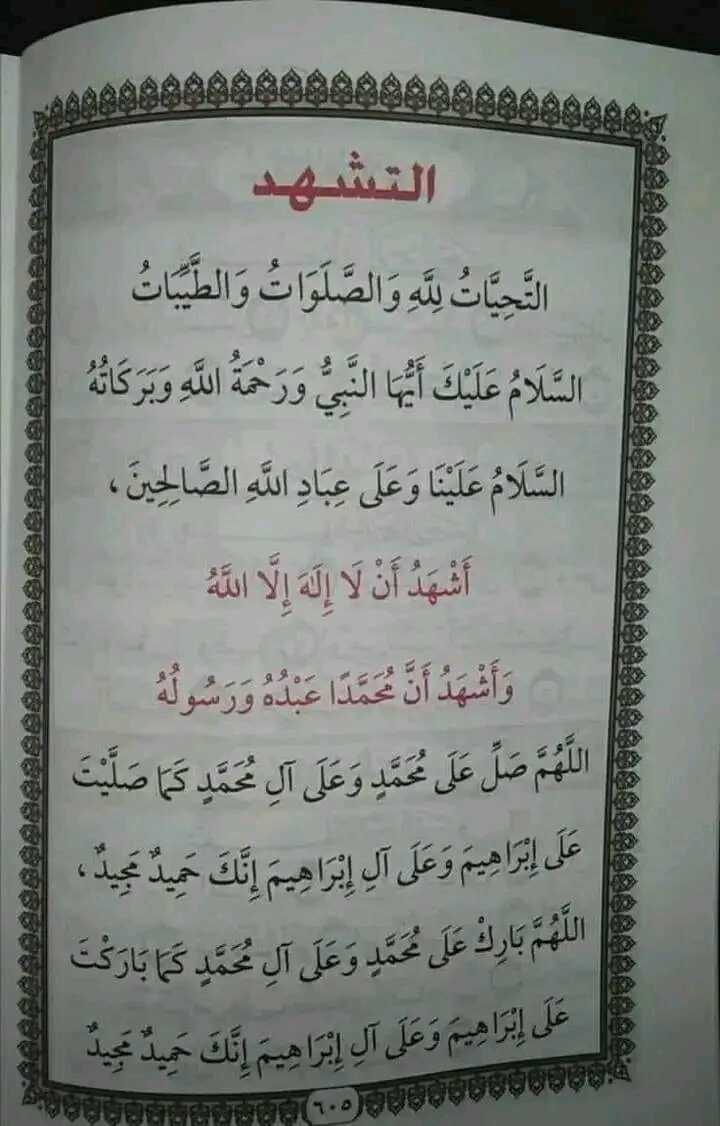 التشهد
التَّحِيَّاتُ لِلَّهِ وَالصَّلَوَاتُ وَالطَّيِّبَاتُ
السَّلَامُ عَلَيْكَ أَيُّهَا النَّبِيُّ وَرَحْمَةُ اللَّهِ وَبَرَكَاتُهُ
السَّلَامُ عَلَيْنَا وَعَلَى عِبَادِ اللَّهِ الصَّالِحِينَ ،
أَشْهَدُ أَنْ لَا إِلَهَ إِلَّا اللَّهُ
وَأَشْهَدُ أَنَّ مُحَمَّدًا عَبْدُهُ وَرَسُولُهُ
اللَّهُمَّ صَلِّ عَلَى مُحَمَّدٍ وَعَلَى آلِ مُحَمَّدٍ كَمَا صَلَّيْتَ
عَلَى إِبْرَاهِيمَ وَعَلَى آلِ إِبْرَاهِيمَ إِنَّكَ حَمِيدٌ مَجِيدٌ ،
اللَّهُمَّ بَارِكْ عَلَى مُحَمَّدٍ وَعَلَى آلِ مُحَمَّدٍ كَمَا بَارَكْتَ
عَلَى إِبْرَاهِيمَ وَعَلَى آلِ إِبْرَاهِيمَ إِنَّكَ حَمِيدٌ مَجِيدٌ
٦٠٥